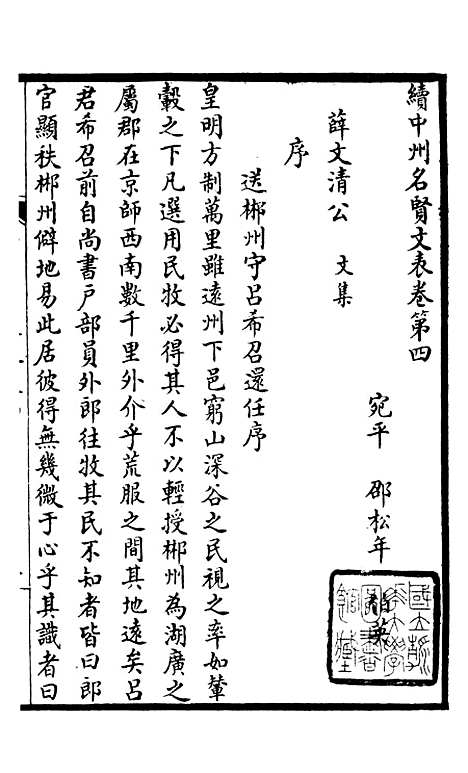 續中州名賢文表卷第四
宛平 邵松年
薛文清公 文集
序
送郴州守呂希召還任序
皇明方制萬里雖遠州下邑窮山深谷之民視之率如輦
轂之下凡選用民牧必得其人不以輕授郴州為湖廣之
屬郡在京師西南數千里外介乎荒服之間其地遠矣呂
君希召前自尚書戶部員外郎往牧其民不知者皆曰郎
官顯秩郴州僻地易此居彼得無幾微于心乎其識者曰